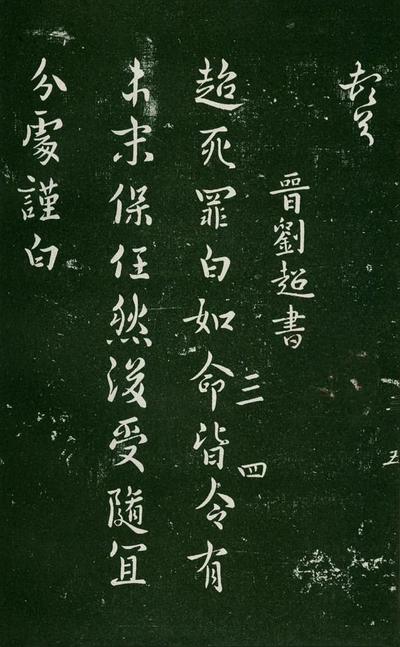 五
晉劉超書
三
四
超死罪白如命皆令有
本末保任然後受隨宜
分處謹白